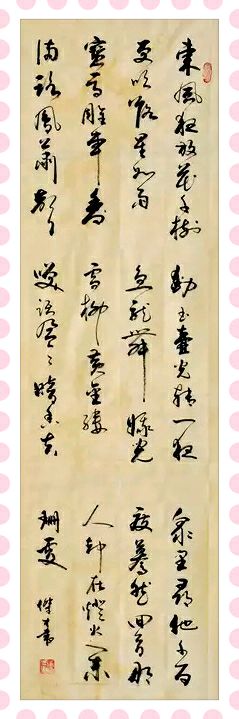 東風夜放花千樹
更吹落星如雨
寶馬雕車香
滿路鳳簫聲
動玉壺光轉一夜
魚龍舞蛾兒
雪柳黃金縷
笑語盈盈暗香去
眾里尋他千百
度驀然回首那
人卻在燈火闌
珊處
傑書